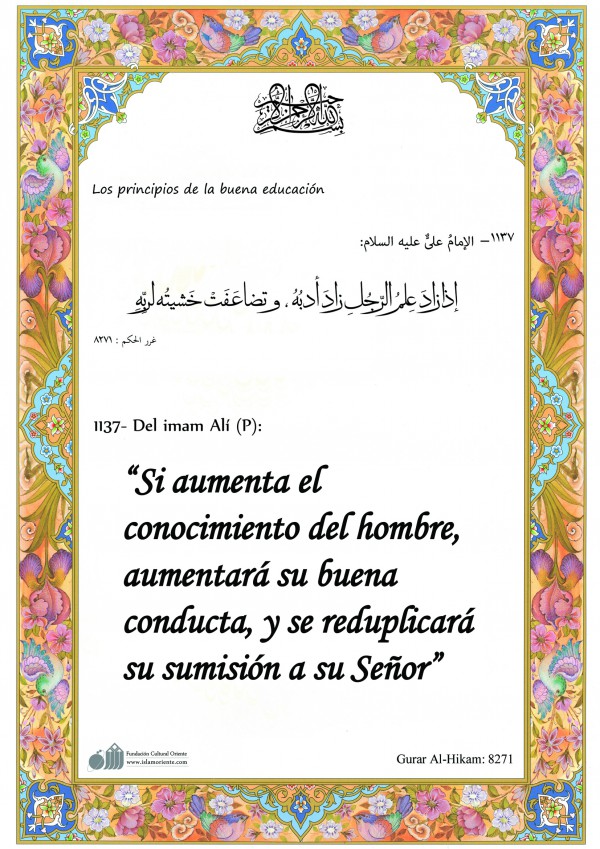 بسم الله الرحمن الرحيم
Los principios de la buena educación
١١٣٧– الإمامُ عليٌّ عليه السلام:
إذا زادَ عِلمُ الرّجُلِ زادَ أدبُهُ، و تضاعَفَتْ خَشيتُه لربِّهِ
غرر الحكم : ٨٢٧١
1137- Del imam Alí (P):
“Si aumenta el
conocimiento del hombre,
aumentará su buena
conducta, y se reduplicará
su sumisión a su Señor”
Fundación Cultural Oriente
www.islamoriente.com
Gurar Al-Hikam: 8271